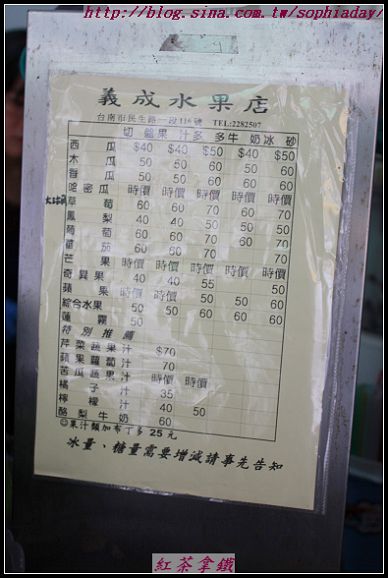 http://blog.sina.com.tw/sophiaday/
義成水果店
台南市民生路一段116號 TEL:2282507
切盤果 汁多 多牛 奶冰 砂
西瓜 $40 $40 $50 $40 $50
木瓜 50 50 60 50 60
香瓜 50 50 60 50 60
哈密瓜 時價 時價 時價 時價 時價
草莓 60 60 70 60 70
鳳梨 40 40 50 50 60
葡萄 60 60 70 60 70
蕃茄 60 60 70
芒果 時價 時價 時價 時價 時價
奇異果 40 40 55 50
蘋果 時價 時價
綜合水果 50 50 50 60 60
蓮霧 50 50 60
特別推薦
芹菜蔬果汁 $70
蘋果蘿蔔汁 70
苦瓜蔬果汁 時價 時價
橘子汁 35
檸檬汁 40 50
酪梨牛奶 60
☺果汁類加布丁多 25 元
冰量、糖量需要增減請事先告知
紅茶拿鐵